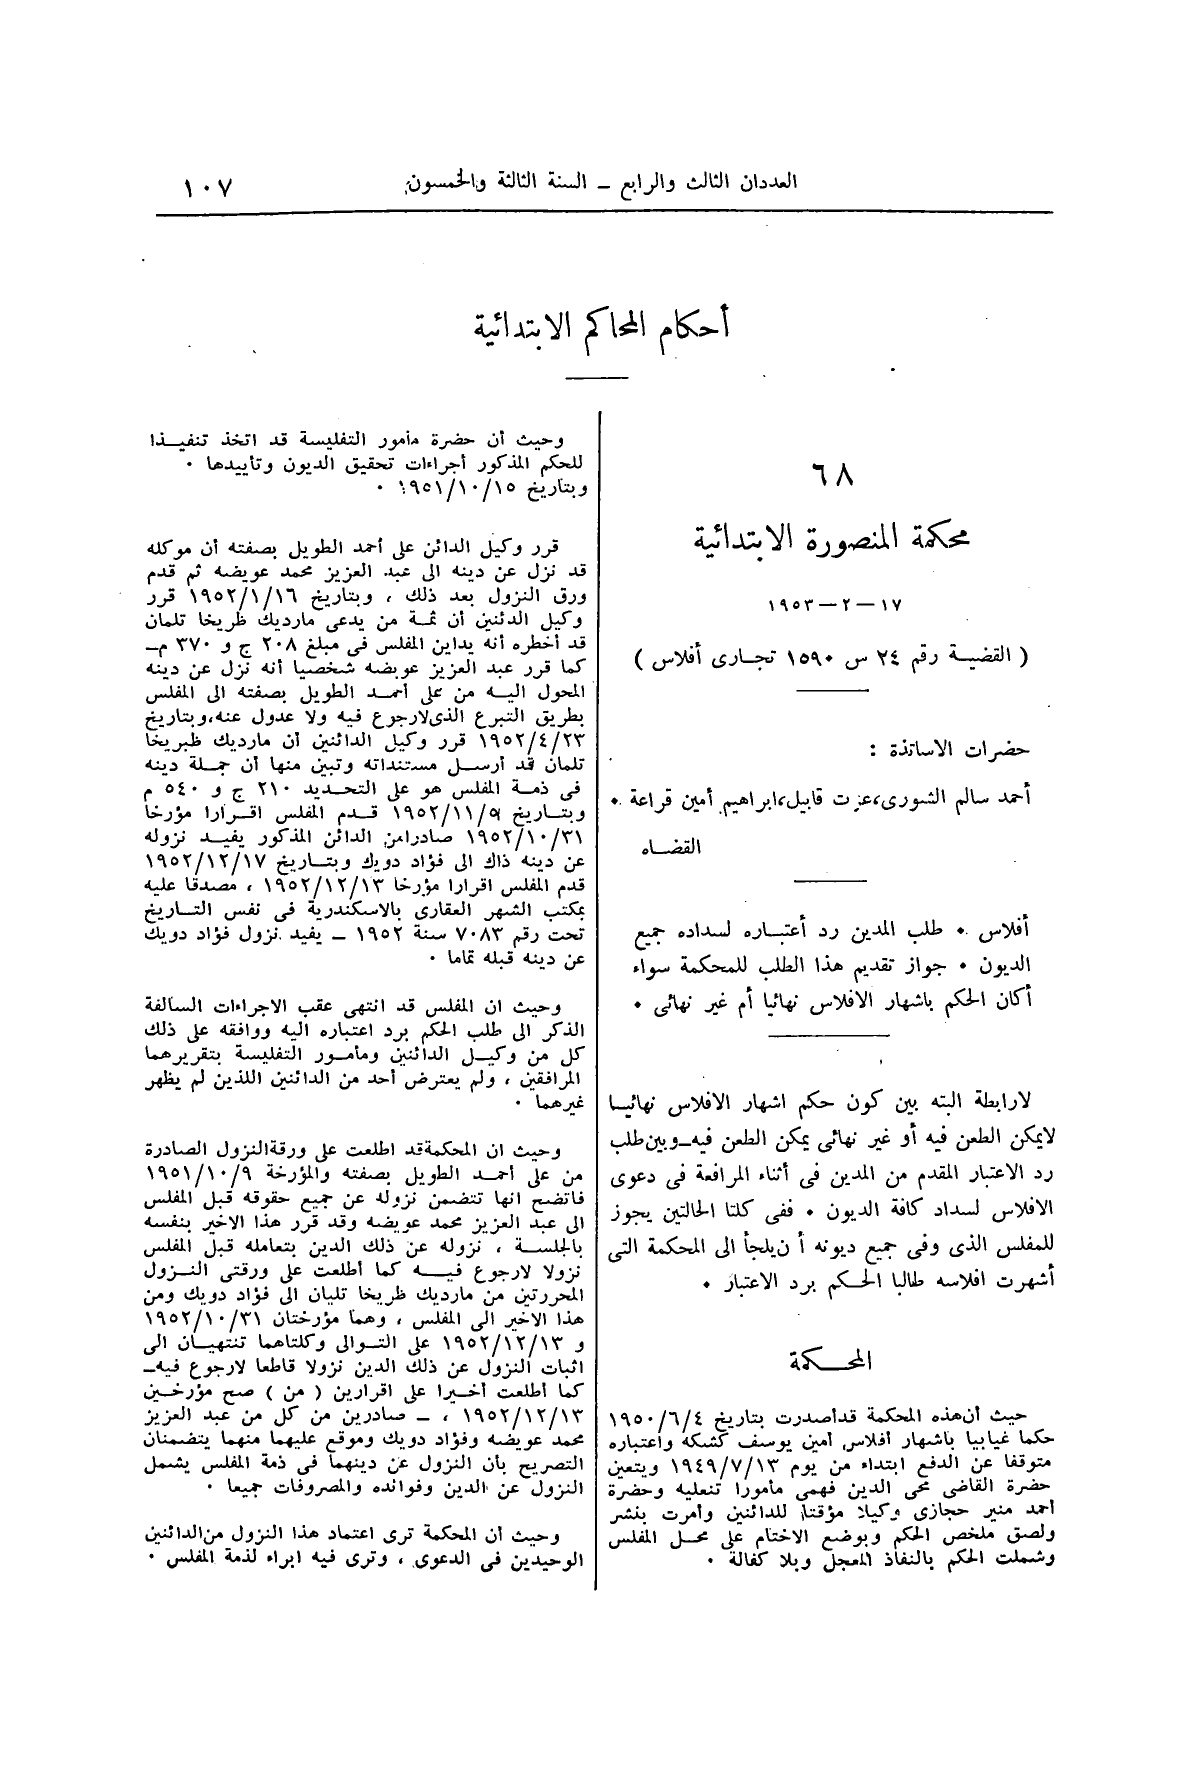 العددان الثالث والرابع – السنة الثالثة والخمسون
١٠٧
أحكام المحاكم الابتدائية
٦٨
محكمة المنصورة الابتدائية
١٧ — ٢ — ١٩٥٣
( القضية رقم ٢٤ س ١٥٩٠ تجارى أفلاس )
حضرات الاساتذة :
أحمد سالم الشورى، عزت قابيل، ابراهيم أمين قراعة •
القضاه
أفلاس • طلب المدين رد أعتباره لسداده جميع
الديون • جواز تقديم هذا الطلب للمحكمة سواء
أكان الحكم باشهار الافلاس نهائيا أم غير نهائى •
لارابطة البته بين كون حكم اشهار الافلاس نهائيا
لايمكن الطعن فيه أو غير نهائى يمكن الطعن فيه وبين طلب
رد الاعتبار المقدم من المدين فى أثناء المرافعة فى دعوى
الافلاس لسداد كافة الديون • ففى كلتا الحالتين يجوز
للمفلس الذى وفى جميع ديونه أ ن يلجأ الى المحكمة التى
أشهرت افلاسه طالبا الحكم برد الاعتبار •
المحكمة
حيث أن هذه المحكمة قد أصدرت بتاريخ ١٩٥٠/٦/٤
حكما غيابيا باشهار أفلاس أمين يوسف كشكه واعتباره
متوقفا عن الدفع ابتداء من يوم ١٩٤٩/٧/١٣ ويتعين
حضرة القاضى محى الدين فهمى مأمورا تنعليه وحضرة
احمد منير حجازى وكيلا مؤقتا للدائنين وأمرت بنشر
ولصق ملخص الحكم وبوضع الاختام على محل المفلس
وشملت الحكم بالنفاذ المعجل وبلا كفالة •
وحيث أن حضرة مأمور التفليسة قد اتخذ تنفيذا
للحكم المذكور أجراءات تحقيق الديون وتأييدها •
وبتاريخ ١٩٥١/١٠/١٥ •
قرر وكيل الدائن على أحمد الطويل بصفته أن موكله
قد نزل عن دينه الى عبد العزيز محمد عويضه ثم قدم
ورق النزول بعد ذلك ، وبتاريخ ١٩٥٢/١/١٦ قرر
وكيل الدئنين أن ثمة من يدعى مارديك ظريخا تلمان
قد أخطره أنه يداين المفلس فى مبلغ ٢٠٨ ج و ٣٧٠ م
كما قرر عبد العزيز عويضه شخصيا أنه نزل عن دينه
المحول اليه من على أحمد الطويل بصفته الى المفلس
بطريق التبرع الذى لارجوع فيه ولا عدول عنه، وبتاريخ
١٩٥٢/٤/٢٣ قرر وكيل الدائنين أن مارديك ظبريخا
تلمان قد أرسل مستنداته وتبين منها أن جملة دينه
فى ذمة المفلس هو على التحديد ٢١٠ ج و ٥٤٠ م
وبتاريخ ١٩٥٢/١١/٩ قدم المفلس اقرارا مؤرخا
١٩٥٢/١٠/٣١ صادرا من الدائن المذكور يفيد نزوله
عن دينه ذاك الى فؤاد دويك وبتاريخ ١٩٥٢/١٢/١٧
قدم المفلس اقرارا مؤرخا ١٩٥٢/١٢/١٣ ، مصدقا عليه
بمكتب الشهر العقارى بالاسكندرية فى نفس التاريخ
تحت رقم ٧٠٨٣ سنة ١٩٥٢ – يفيد نزول فؤاد دويك
عن دينه قبله تماما •
وحيث ان المفلس قد انتهى عقب الاجراءات السالفة
الذكر الى طلب الحكم برد اعتباره اليه ووافقه على ذلك
كل من وكيل الدائنين ومأمور التفليسة بتقريرهما
المرافقين ، ولم يعترض أحد من الدائنين اللذين لم يظهر
غيرهما •
وحيث ان المحكمة قد اطلعت على ورقة النزول الصادرة
من على أحمد الطويل بصفته والمؤرخة ١٩٥١/١٠/٩
فاتضح انها تتضمن نزوله عن جميع حقوقه قبل المفلس
الى عبد العزيز محمد عويضه وقد قرر هذا الاخير بنفسه
بالجلسة ، نزوله عن ذلك الدين بتعامله قبل المفلس
نزولا لارجوع فيه كما أطلعت على ورقتى النزول
المحررتين من مارديك ظريخا تليان الى فؤاد دويك ومن
هذا الاخير الى المفلس ، وهما مؤرختان ١٩٥٢/١٠/٣١
و ١٩٥٢/١٢/١٣ على التوالى وكلتاهما تنتهيان الى
اثبات النزول عن ذلك الدين نزولا قاطعا لارجوع فيه
كما أطلعت أخيرا على اقرارين ( من ) صح مؤرخين
١٩٥٢/١٢/١٣ ، – صادرين من كل من عبد العزيز
محمد عويضه وفؤاد دويك وموقع عليهما منهما يتضمنان
التصريح بأن النزول عن دينهما فى ذمة المفلس يشمل
النزول عن الدين وفوائده والمصروفات جميعا •
وحيث أن المحكمة ترى اعتماد هذا النزول من الدائنين
الوحيدين فى الدعوى ، وترى فيه ابراء لذمة المفلس •